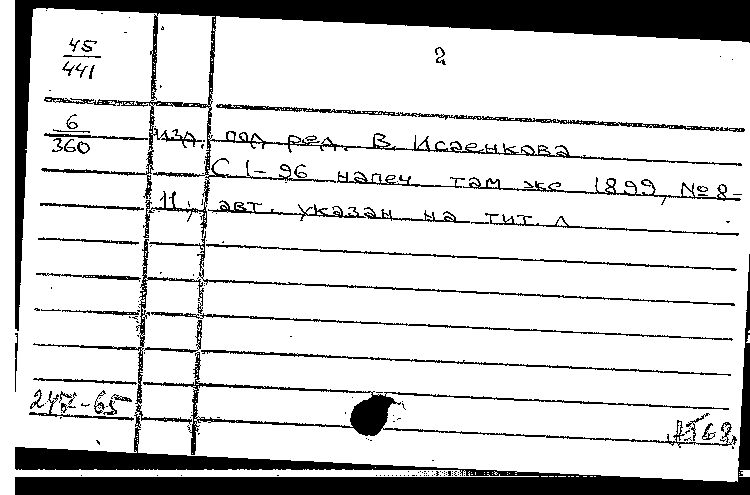 45
441
2
6
360
изд. под ред. В. Исаенкова
С 1-96 напеч. там же 1899, № 8-
11; авт. указан на тит. л.